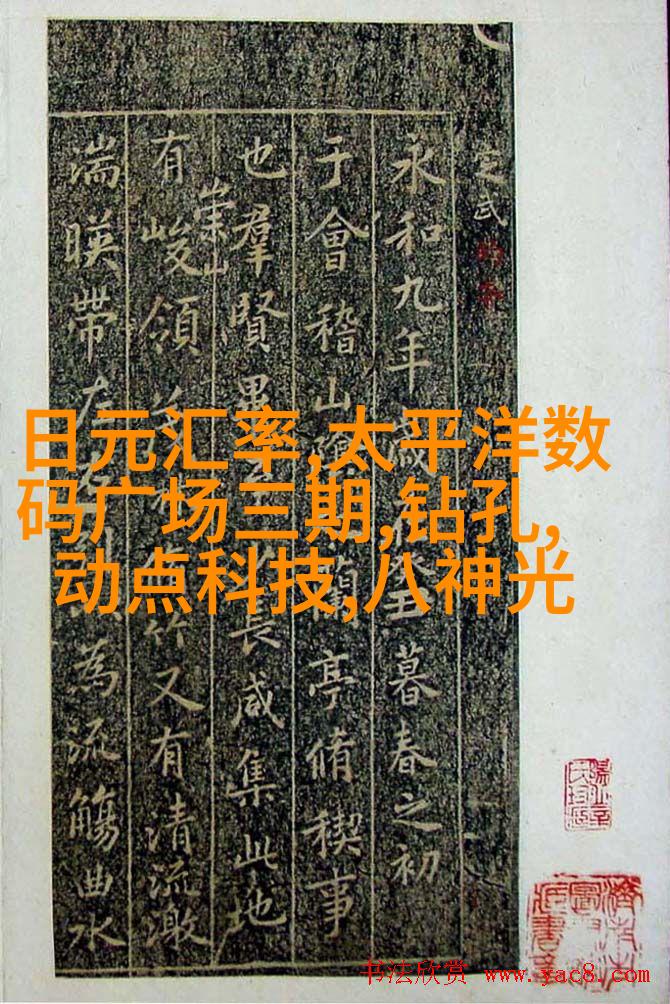 定武
永和九年歲在癸丑暮春之初
于會稽山陰蘭亭脩稧事
也羣賢畢至長咸集此地
崇山
有峻領茂林竹又有清流激
湍暎帶左右為流觴曲水
日元汇率,太平洋数
码广场三期,钻孔,
动点科技,八神光
书法欣赏 www.yac8.com